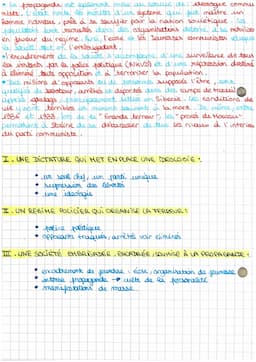 • La propagande est également mise au service de l'idéologie commu-
niste. Il s'agit partie de créer d'un système qui fait naître un
homme nouveau, prêt à se sacrifier pour la nation soviétique. La
population sont recrutés dans des organisations dédiées à son service
en faveur du régime. Ainsi, l'école et les jeunesses communistes dispense
la faute tout et l'embrigadent.
• L'encadrement de la société s'accompagne d'une surveillance de tous
les instants par la police politique (NKVD) et d'une répression destinée
à éliminer toute opposition et à terroriser la population.
• Des millions d'opposants ou de personnes supposés l'être, sans
quelque de secteur, arrêtés et déportés dans des camps de travail
appelés goulags, principalement situés en Sibérie. Les conditions de
vie y sont terribles et mènent souvent à la mort. De même, entre
1936 et 1938, lors de la "Grande terreur", les "procès de Moscou"
permettent à Staline de se débarrasser de tous ses rivaux à l'intérieur
du parti communiste.
I. UNE DICTATURE QUI MET EN PLACE UNE IDEOLOGIE :
• un seul chef, un parti unique
• suppression des libertés
• une idéologie
II. UN REGIME POLICIER QUI ORGANISE LA TERREUR :
• police politique
• opposants traqués, arrêtés voir éliminés
III. UNE SOCIÉTÉ EMBRIGADEE, ENCADRÉE, SOUMISE À LA PROPAGANDE :
• encadrement de jeunesse : école, organisation de jeunesse
• intense propagande → culte de la personnalité
• manifestations de masse